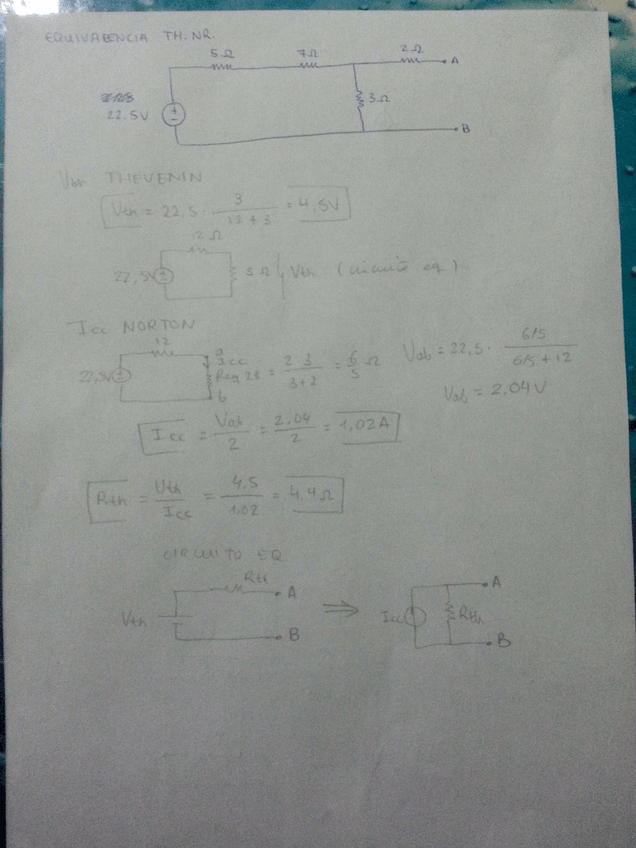 EQUIVALENCIA TH. NR.
5Ω 7Ω 2Ω
A
3Ω
22.5V
B
THEVENIN
Vth = 22,5 · 3 / 12+3 = 4,5V
12Ω
22,5V 3Ω Vth (circuito eq)
Icc NORTON
12 a
22,5V Icc
Req 23 = 2·3 / 3+2 = 6/5 Ω
b
Vab = 22,5 · 6/5 / 6/5 + 12
Vab = 2,04V
Icc = Vab/2 = 2,04/2 = 1,02A
Rth = Vth/Icc = 4,5/1,02 = 4,4Ω
CIRCUITO EQ
Rth A A
Vth ⇒ Icc Rth
B B